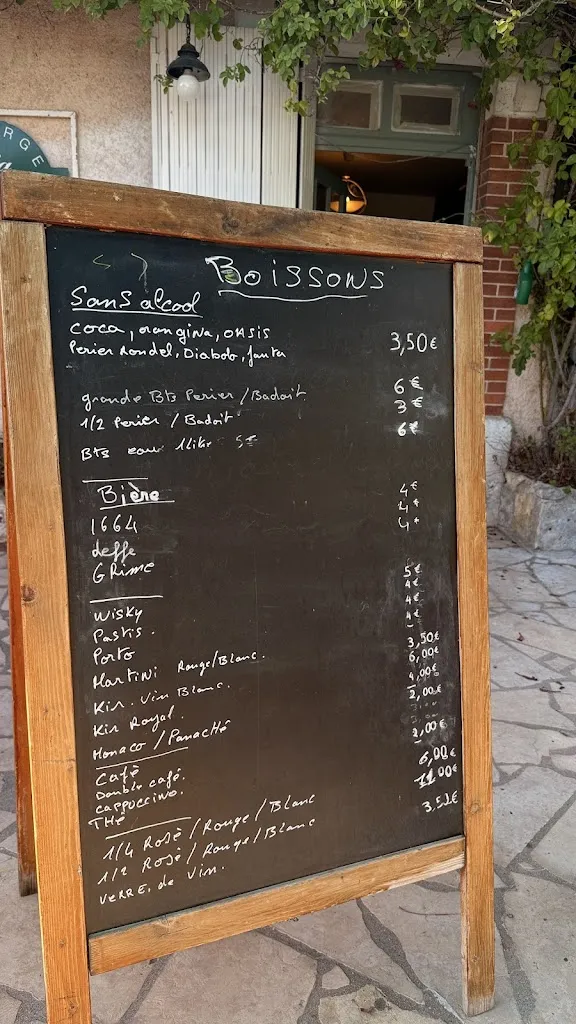 RGE
Boissons
Sans alcool
COCA, orangina, OASIS
Perier Rondel, Diabolo, fanta 3,50€
grande Bts Perier / Badoit 6€
1/2 Perier / Badoit 3€
Bts eau 1 litre 5€ 6€
Bière
1664 4€
Leffe 4€
GRIMB 4€
WISKY 5€
Pastis. 4€
Porto 4€
MARTINI Rouge/Blanc. 4€
Kir. Vin Blanc. 3,50€
Kir Royal. 6,00€
Monaco / PanacHé 4,00€
Café 2,00€
Double café.
cappuccino.
THé 2,00€
1/4 Rosè / Rouge / Blanc 6,00€
1/2 Rosè / Rouge / Blanc 11.00€
VERRE. de Vin. 3,50€